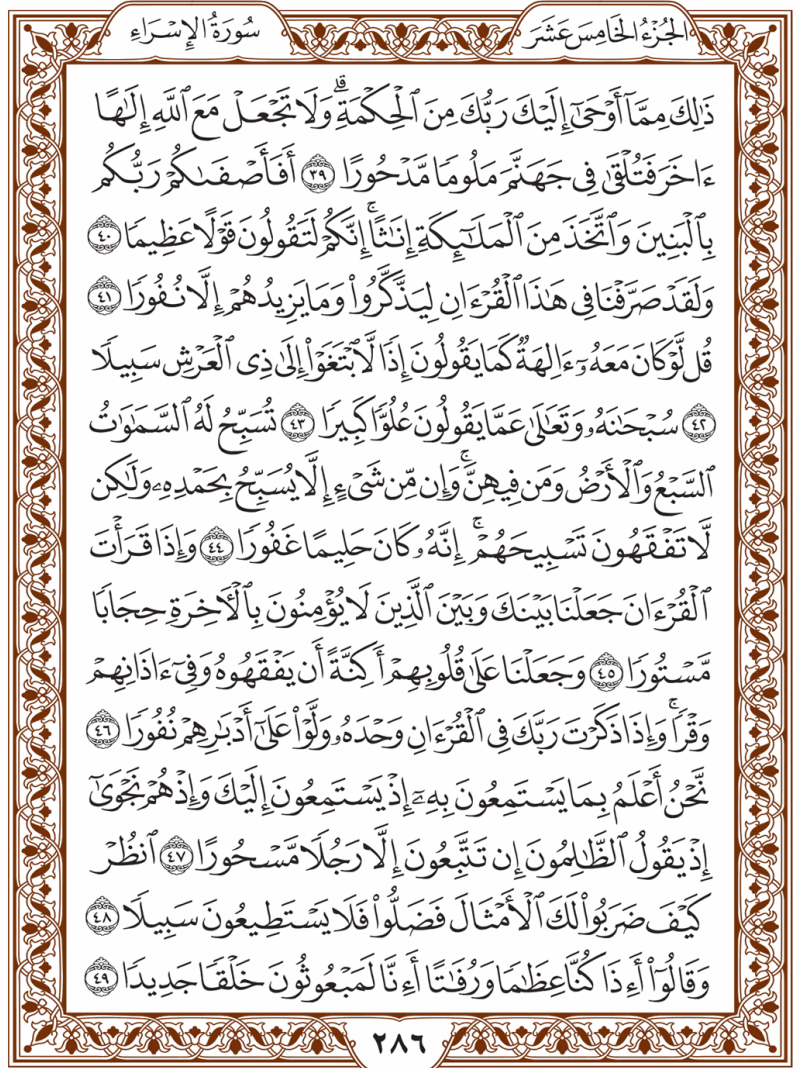 الجُزْءُ الخَامِسَ عَشَرَ
سُورَةُ الإِسْرَاءِ
ذَٰلِكَ مِمَّآ أَوْحَىٰٓ إِلَيْكَ رَبُّكَ مِنَ ٱلْحِكْمَةِۗ وَلَا تَجْعَلْ مَعَ ٱللَّهِ إِلَٰهًا
ءَاخَرَ فَتُلْقَىٰ فِى جَهَنَّمَ مَلُومًا مَّدْحُورًا ٣٩ أَفَأَصْفَىٰكُمْ رَبُّكُم
بِٱلْبَنِينَ وَٱتَّخَذَ مِنَ ٱلْمَلَٰٓئِكَةِ إِنَٰثًاۚ إِنَّكُمْ لَتَقُولُونَ قَوْلًا عَظِيمًا ٤٠
وَلَقَدْ صَرَّفْنَا فِى هَٰذَا ٱلْقُرْءَانِ لِيَذَّكَّرُوا۟ وَمَا يَزِيدُهُمْ إِلَّا نُفُورًا ٤١
قُل لَّوْ كَانَ مَعَهُۥٓ ءَالِهَةٌ كَمَا يَقُولُونَ إِذًا لَّٱبْتَغَوْا۟ إِلَىٰ ذِى ٱلْعَرْشِ سَبِيلًا
٤٢ سُبْحَٰنَهُۥ وَتَعَٰلَىٰ عَمَّا يَقُولُونَ عُلُوًّا كَبِيرًا ٤٣ تُسَبِّحُ لَهُ ٱلسَّمَٰوَٰتُ
ٱلسَّبْعُ وَٱلْأَرْضُ وَمَن فِيهِنَّۚ وَإِن مِّن شَىْءٍ إِلَّا يُسَبِّحُ بِحَمْدِهِۦ وَلَٰكِن
لَّا تَفْقَهُونَ تَسْبِيحَهُمْۚ إِنَّهُۥ كَانَ حَلِيمًا غَفُورًا ٤٤ وَإِذَا قَرَأْتَ
ٱلْقُرْءَانَ جَعَلْنَا بَيْنَكَ وَبَيْنَ ٱلَّذِينَ لَا يُؤْمِنُونَ بِٱلْءَاخِرَةِ حِجَابًا
مَّسْتُورًا ٤٥ وَجَعَلْنَا عَلَىٰ قُلُوبِهِمْ أَكِنَّةً أَن يَفْقَهُوهُ وَفِىٓ ءَاذَانِهِمْ
وَقْرًاۚ وَإِذَا ذَكَرْتَ رَبَّكَ فِى ٱلْقُرْءَانِ وَحْدَهُۥ وَلَّوْا۟ عَلَىٰٓ أَدْبَٰرِهِمْ نُفُورًا ٤٦
نَّحْنُ أَعْلَمُ بِمَا يَسْتَمِعُونَ بِهِۦٓ إِذْ يَسْتَمِعُونَ إِلَيْكَ وَإِذْ هُمْ نَجْوَىٰٓ
إِذْ يَقُولُ ٱلظَّٰلِمُونَ إِن تَتَّبِعُونَ إِلَّا رَجُلًا مَّسْحُورًا ٤٧ ٱنظُرْ
كَيْفَ ضَرَبُوا۟ لَكَ ٱلْأَمْثَالَ فَضَلُّوا۟ فَلَا يَسْتَطِيعُونَ سَبِيلًا ٤٨
وَقَالُوٓا۟ أَءِذَا كُنَّا عِظَٰمًا وَرُفَٰتًا أَءِنَّا لَمَبْعُوثُونَ خَلْقًا جَدِيدًا ٤٩
٢٨٦